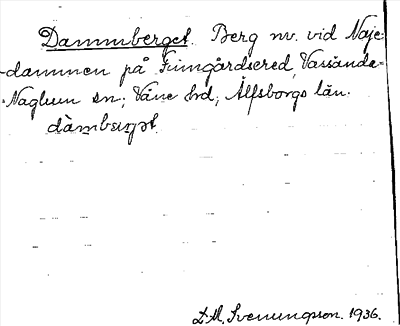 Dammberget. Berg nv. vid Naje-
dammen på Fringårdsered, Vassända-
Naglum sn; Väne hrd; Älfsborgs län.
dàmbærget.
D.M. Svenungson. 1936.